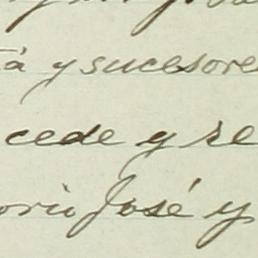 y sucesore
cede y re
orio José y